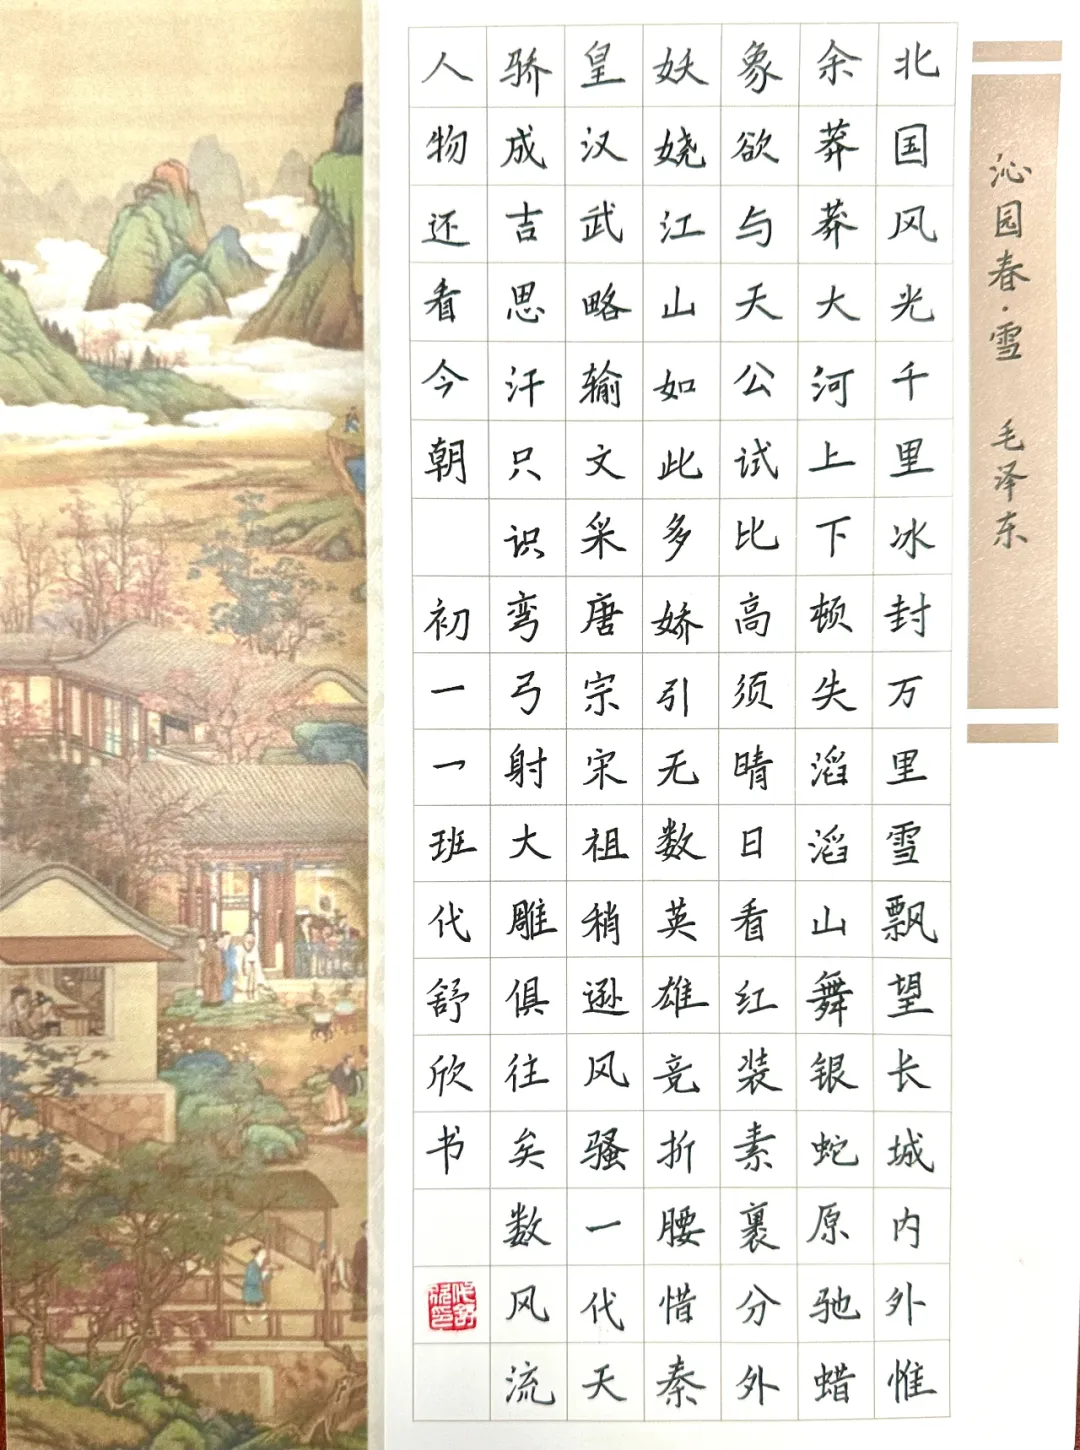 沁园春·雪 毛泽东
北国风光千里冰封万里雪飘望长城内外惟
余莽莽大河上下顿失滔滔山舞银蛇原驰蜡
象欲与天公试比高须晴日看红装素裹分外
妖娆江山如此多娇引无数英雄竞折腰惜秦
皇汉武略输文采唐宗宋祖稍逊风骚一代天
骄成吉思汗只识弯弓射大雕俱往矣数风流
人物还看今朝 初一一班代舒欣书
代舒欣印